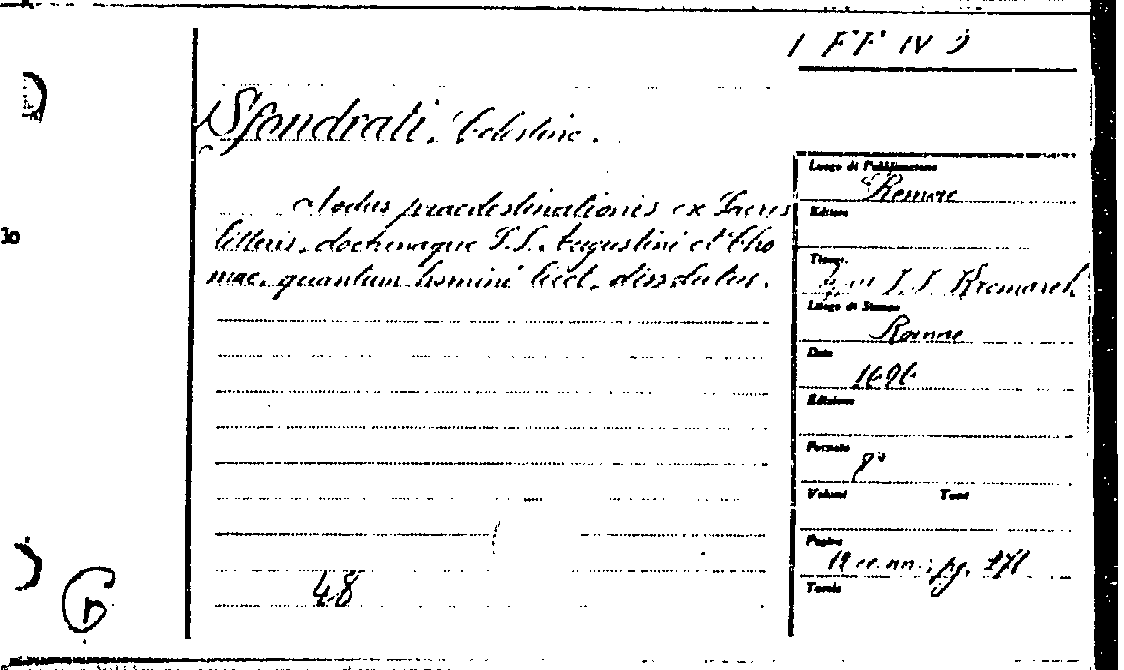 1 FF IV 9
Sfondrati, Celestino.
Nodus praedestinationis ex Sacris
litteris, doctrinaque S.S. Augustini et Tho
mae, quantum homini licet, dissolutus.
Luogo di Pubblicazione
Romae
Editore
Tipogr.
J. J. Kromarek
Luogo di Stampa
Romae
Data
1696
Edizione
Formato
8°
Volumi Tomi
Pagine
cc. nn. pg.
Tavole
48
lo